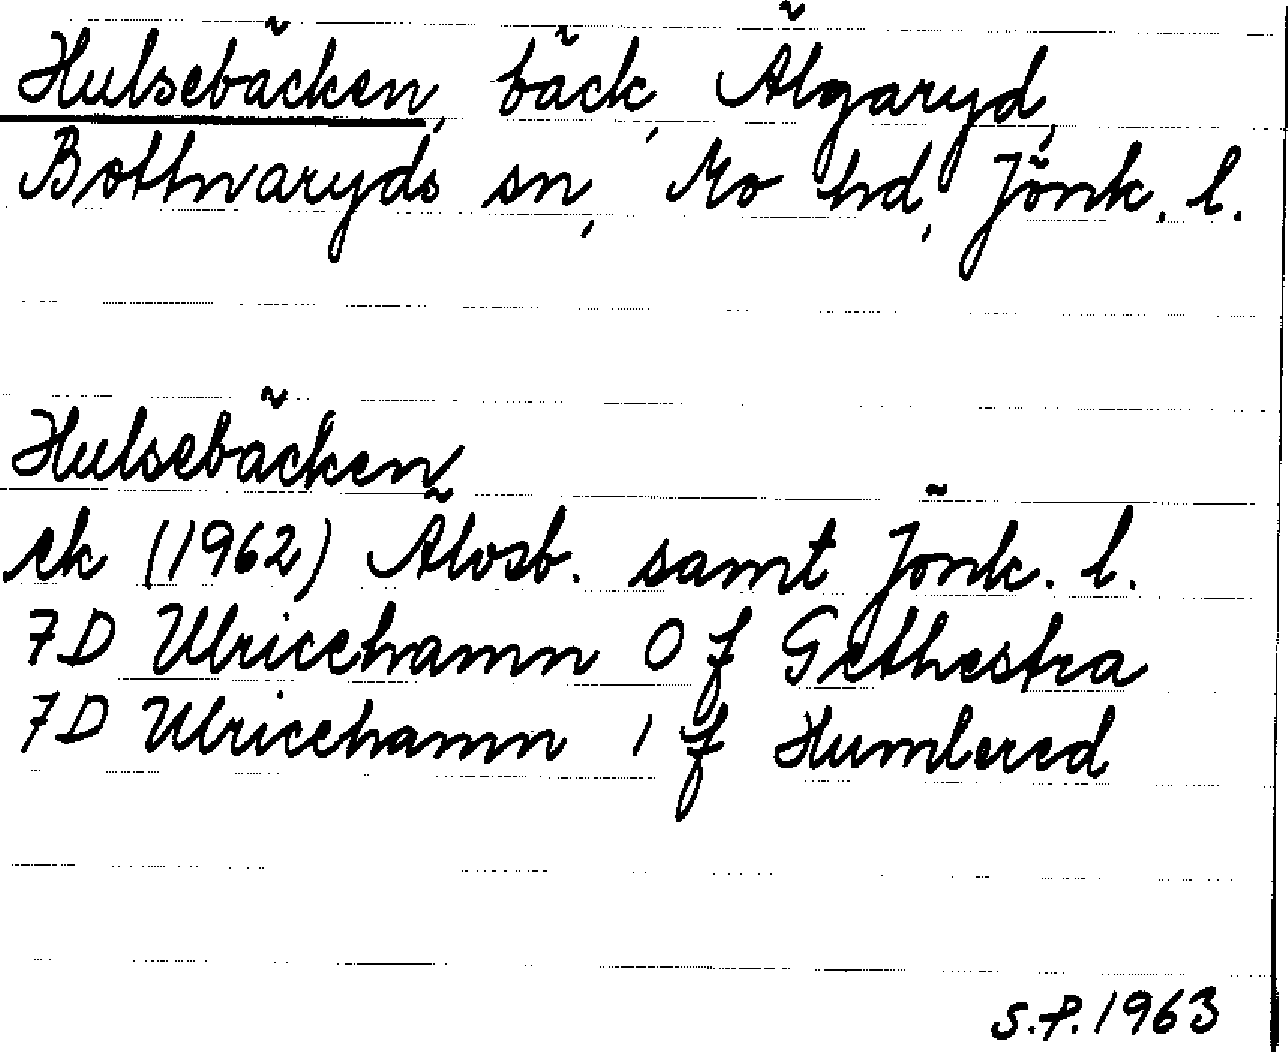 Hulsebäcken, bäck, Älgaryd,
Bottnaryds sn, Mo hd, Jönk. l.
Hulsebäcken
ek (1962) Älvsb. samt Jönk. l.
7D Ulricehamn 0 f Gethestra
7D Ulricehamn 1 f Humlered
S.P. 1963